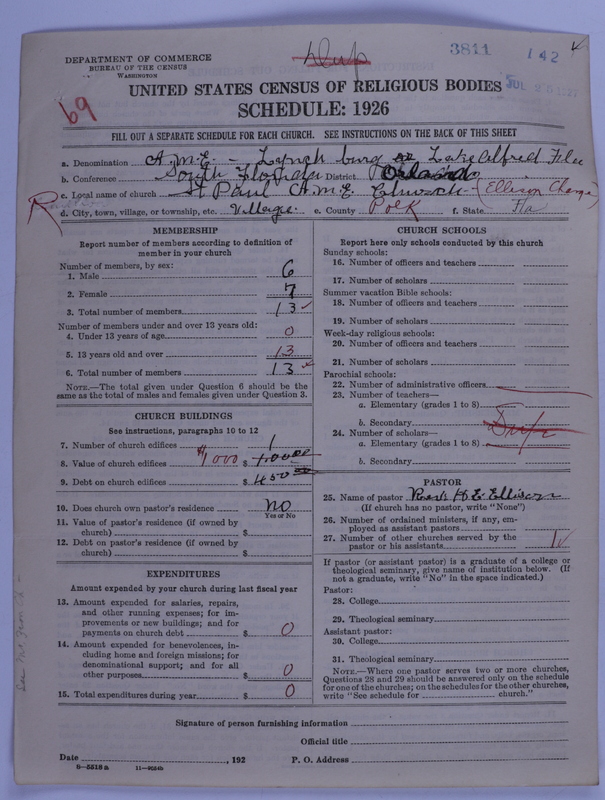 DEPARTMENT OF COMMERCE
BUREAU OF THE CENSUS
WASHINGTON
Dup
3811 142
69
UNITED STATES CENSUS OF RELIGIOUS BODIES
SCHEDULE: 1926
FILL OUT A SEPARATE SCHEDULE FOR EACH CHURCH. SEE INSTRUCTIONS ON THE BACK OF THIS SHEET
a. Denomination A.M.E. - Lynchburg or Lake Alfred Fla
b. Conference South Florida District Orlando
c. Local name of church St Paul A.M.E. Church (Ellison Charge)
R
d. City, town, village, or township, etc. Village e. County Polk f. State Fla
MEMBERSHIP
Report number of members according to definition of member in your church
Number of members, by sex:
1. Male 6
2. Female 7
3. Total number of members 13
Number of members under and over 13 years old:
4. Under 13 years of age 0
5. 13 years old and over 13
6. Total number of members 13
NOTE.—The total given under Question 6 should be the same as the total of males and females given under Question 3.
CHURCH BUILDINGS
See instructions, paragraphs 10 to 12
7. Number of church edifices 1
8. Value of church edifices $1000 $
9. Debt on church edifices $ 450 00
10. Does church own pastor's residence no
Yes or No
11. Value of pastor's residence (if owned by church) $
12. Debt on pastor's residence (if owned by church) $
EXPENDITURES
Amount expended by your church during last fiscal year
13. Amount expended for salaries, repairs, and other running expenses; for improvements or new buildings; and for payments on church debt $ 0
14. Amount expended for benevolences, including home and foreign missions; for denominational support; and for all other purposes $ 0
15. Total expenditures during year $ 0
CHURCH SCHOOLS
Report here only schools conducted by this church
Sunday schools:
16. Number of officers and teachers
17. Number of scholars
Summer vacation Bible schools:
18. Number of officers and teachers
19. Number of scholars
Week-day religious schools:
20. Number of officers and teachers
21. Number of scholars
Parochial schools:
22. Number of administrative officers
23. Number of teachers—
a. Elementary (grades 1 to 8)
b. Secondary
24. Number of scholars—
a. Elementary (grades 1 to 8)
b. Secondary
PASTOR
25. Name of pastor Rev. H. E. Ellison
(If church has no pastor, write "None")
26. Number of ordained ministers, if any, employed as assistant pastors
27. Number of other churches served by the pastor or his assistants 1
If pastor (or assistant pastor) is a graduate of a college or theological seminary, give name of institution below. (If not a graduate, write "No" in the space indicated.)
Pastor:
28. College
29. Theological seminary
Assistant pastor:
30. College
31. Theological seminary
NOTE.—Where one pastor serves two or more churches, Questions 28 and 29 should be answered only on the schedule for one of the churches; on the schedules for the other churches, write "See schedule for church."
Signature of person furnishing information
Official title
Date , 192 P. O. Address
8-5518a 11-9054b